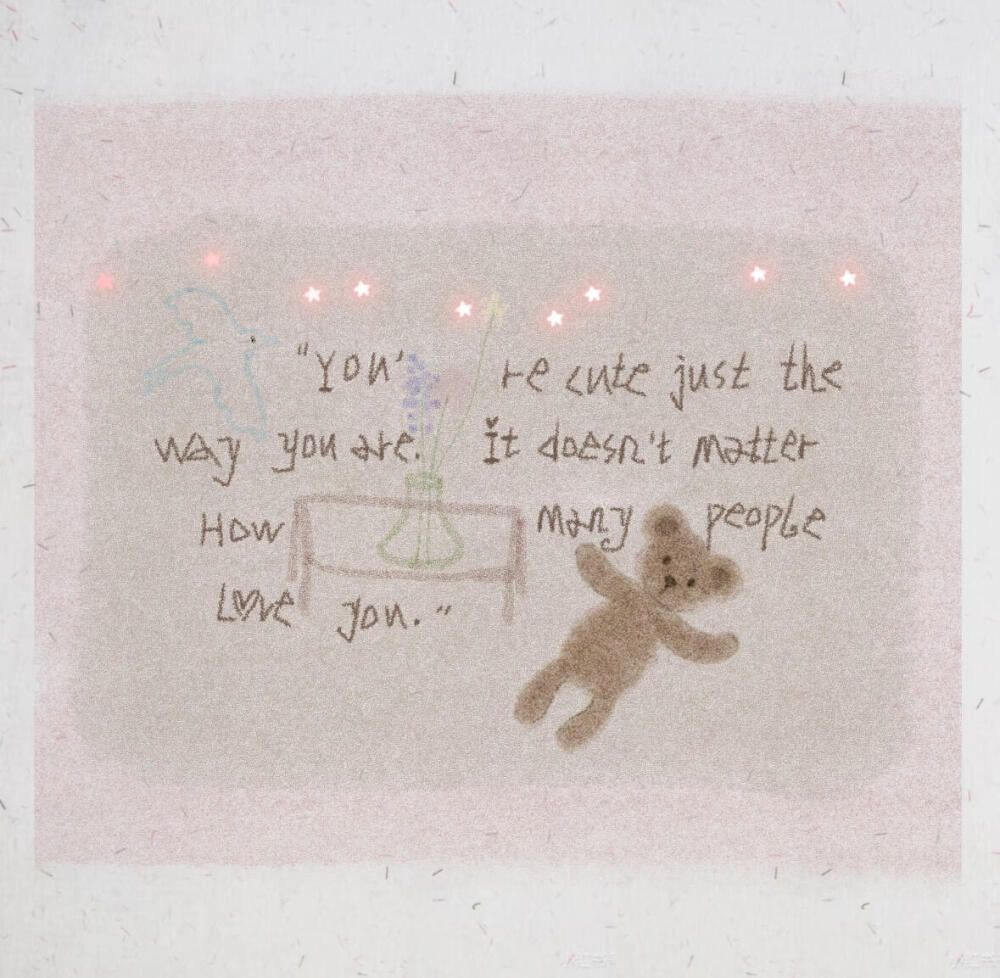 "You're cute just the
way you are. It doesn't matter
How many people
Love you."